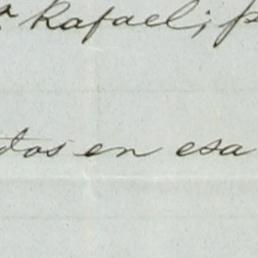 Rafael; p
dos en esa